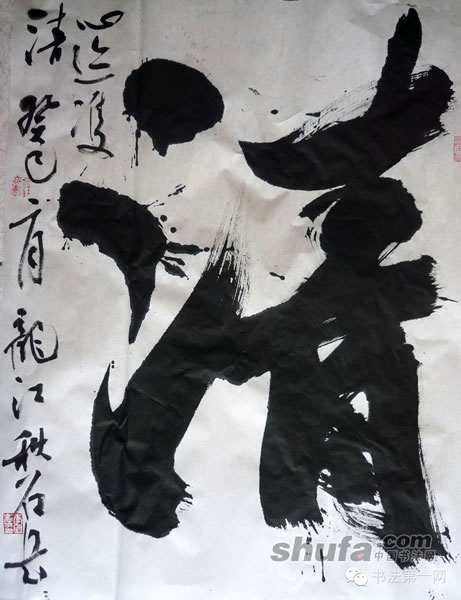 清
心迹雙
清 癸巳 月 龍江秋石
shufa.com
中国书法网
书法第一网